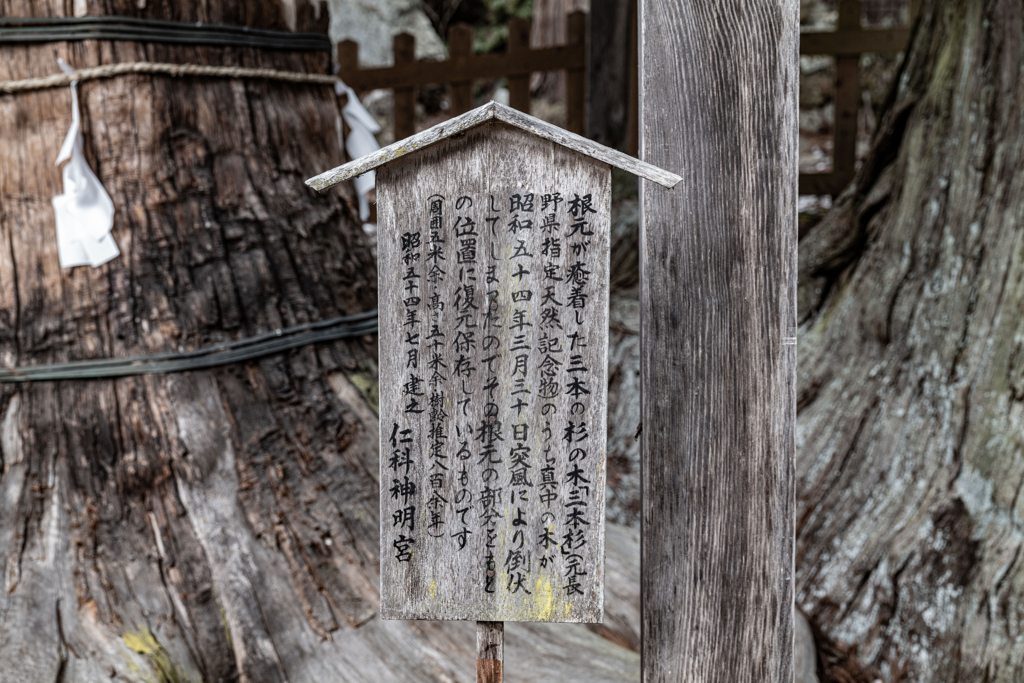 根元が癒着した三本の杉の木「三本杉」元長
野県指定天然記念物のうち真中の木が
昭和五十四年三月三十日突風により倒伏
してしまったのでその根元の部分をもと
の位置に復元保存しているものです
(周囲五米余・高さ五十米余樹齢推定八百余年)
昭和五十四年七月建之 仁科神明宮